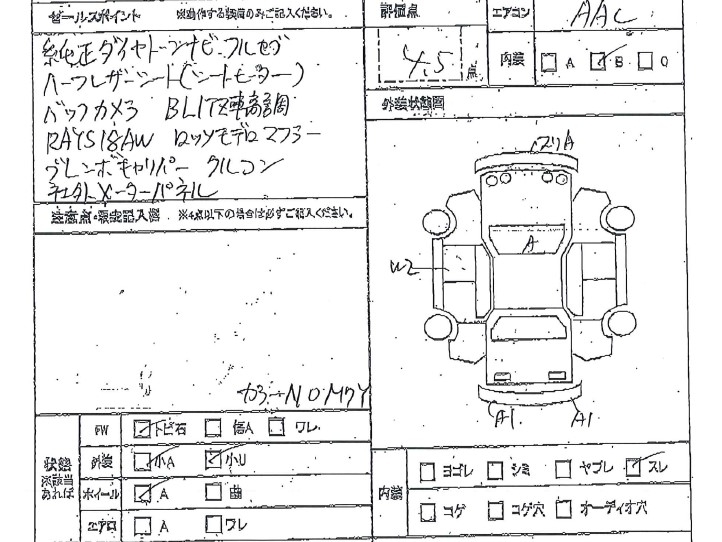 セールスポイント ※動作する装備のみご記入ください。
純正ダイヤトーンナビ フルセグ
ハーフレザーシート(シートヒーター)
バックカメラ BLITZ車高調
RAYS18AW ロッソモデロマフラー
ブレンボキャリパー クルコン
社外メーターパネル
評価点
4.5 点
エアコン AAC
内装 A B C
外装状態図
ズリA
A
W2
A1 A1
注意点・ ※4点以下の場合は必ずご記入ください。
カラーNO M7Y
状態
※該当
あれば
FW トビ石 傷A ワレ
外装 小A 小U
ホイール A 曲
エアロ A ワレ
内装
ヨゴレ シミ ヤブレ スレ
コゲ コゲ穴 オーディオ穴